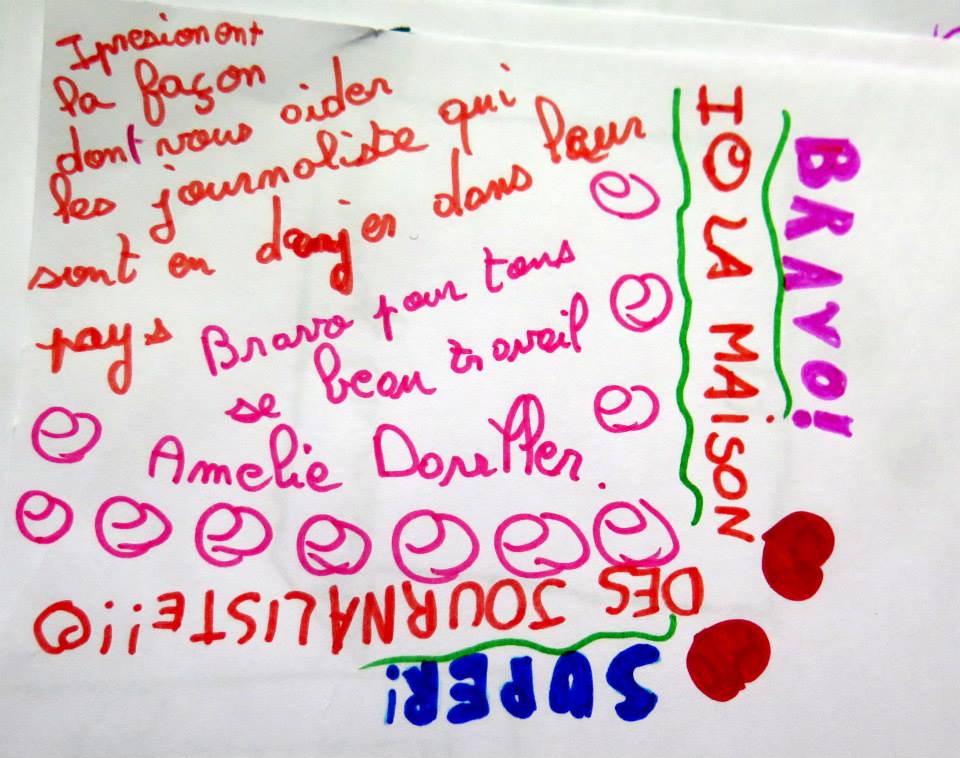 Ipresionent
la façon
dont vous aider
les journaliste qui
sont en danjer dans leur
pays
Bravo pour tous
se beau travail
Amelie
BRAVO!
IO LA MAiSON
DES JOURNALISTE!!
SUPER!